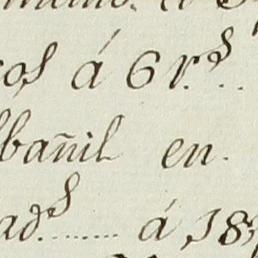 cos á 6 r.s ..
lbañil en
ad.s ........ á 18